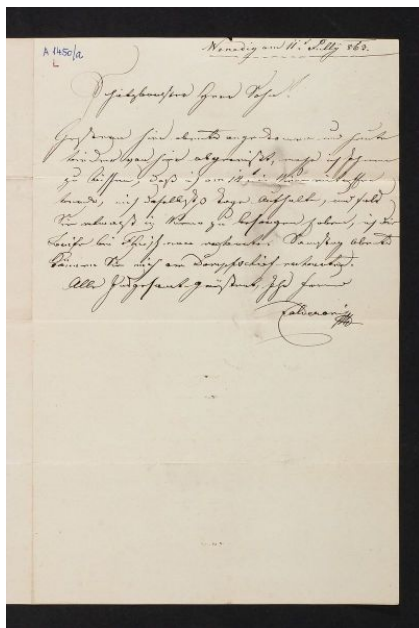 A 1450/a
L
Venedig am 11t Jully 863.
Schätzbarster Herr Sohn!
Gestern hier abends angekommen und heute
wieder von hier abgereist, mache ich Ihnen
zu wissen, daß ich am 14 in Wien eintreffen
werde, mich daselbst 3 Tage Aufhalte, und falls
Sie etwas in Wien zu besorgen haben, ich die
Briefe bei restante. Samstag Abends
können Sie mich am Dampfschiff erwarten.
Alle Insgesamt grüssend, Ihr Freund